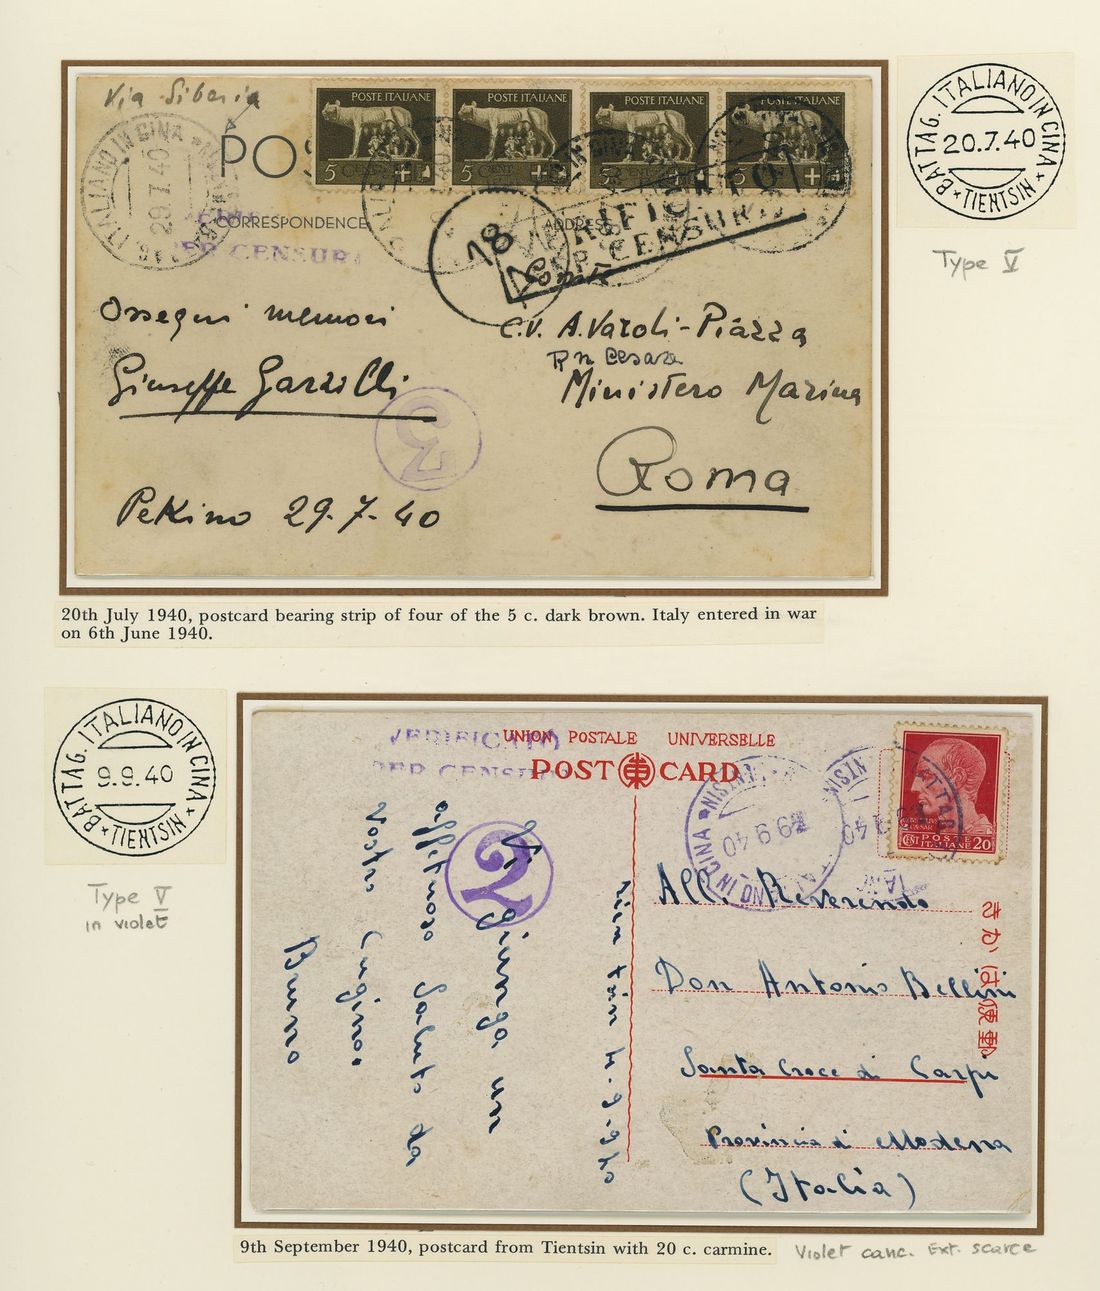 Via Siberia
POS
POSTE ITALIANE
POSTE ITALIANE
POSTE ITALIANE
POSTE ITALIANE
5 CENT
5 CENT
5 CENT
5 CENT
ITALIANO IN CINA
29.7.40
CORRESPONDENCE
ADDRESS
PER CENSURA
18
VERIFICATO
PER CENSURA
BATTAG. ITALIANO IN CINA
20.7.40
* TIENTSIN *
Type V
Ossequi memori
Giuseppe Garzilli
C.V. A. Varoli-Piazza
Rn Cesare
Ministero Marina
Roma
Pekino 29-7-40
20th July 1940, postcard bearing strip of four of the 5 c. dark brown. Italy entered in war
on 6th June 1940.
BATTAG. ITALIANO IN CINA
9.9.40
* TIENTSIN *
Type V
in violet
VERIFICATO
PER CENSURA
UNION POSTALE UNIVERSELLE
POST CARD
TIENTSIN
9 9 40
NO IN CINA
POSTE
ITALIANE
CENT 20
2
Vi giunga un
affettuoso saluto da
Vostro Cugino.
Bruno
Tien Tsin 4-9-940
Alla Reverendo
Don Antonio Bellini
Santa Croce di Carpi
Provincia di Modena
(Italia)
きがは便郵
9th September 1940, postcard from Tientsin with 20 c. carmine.
Violet canc. Ext. scarce